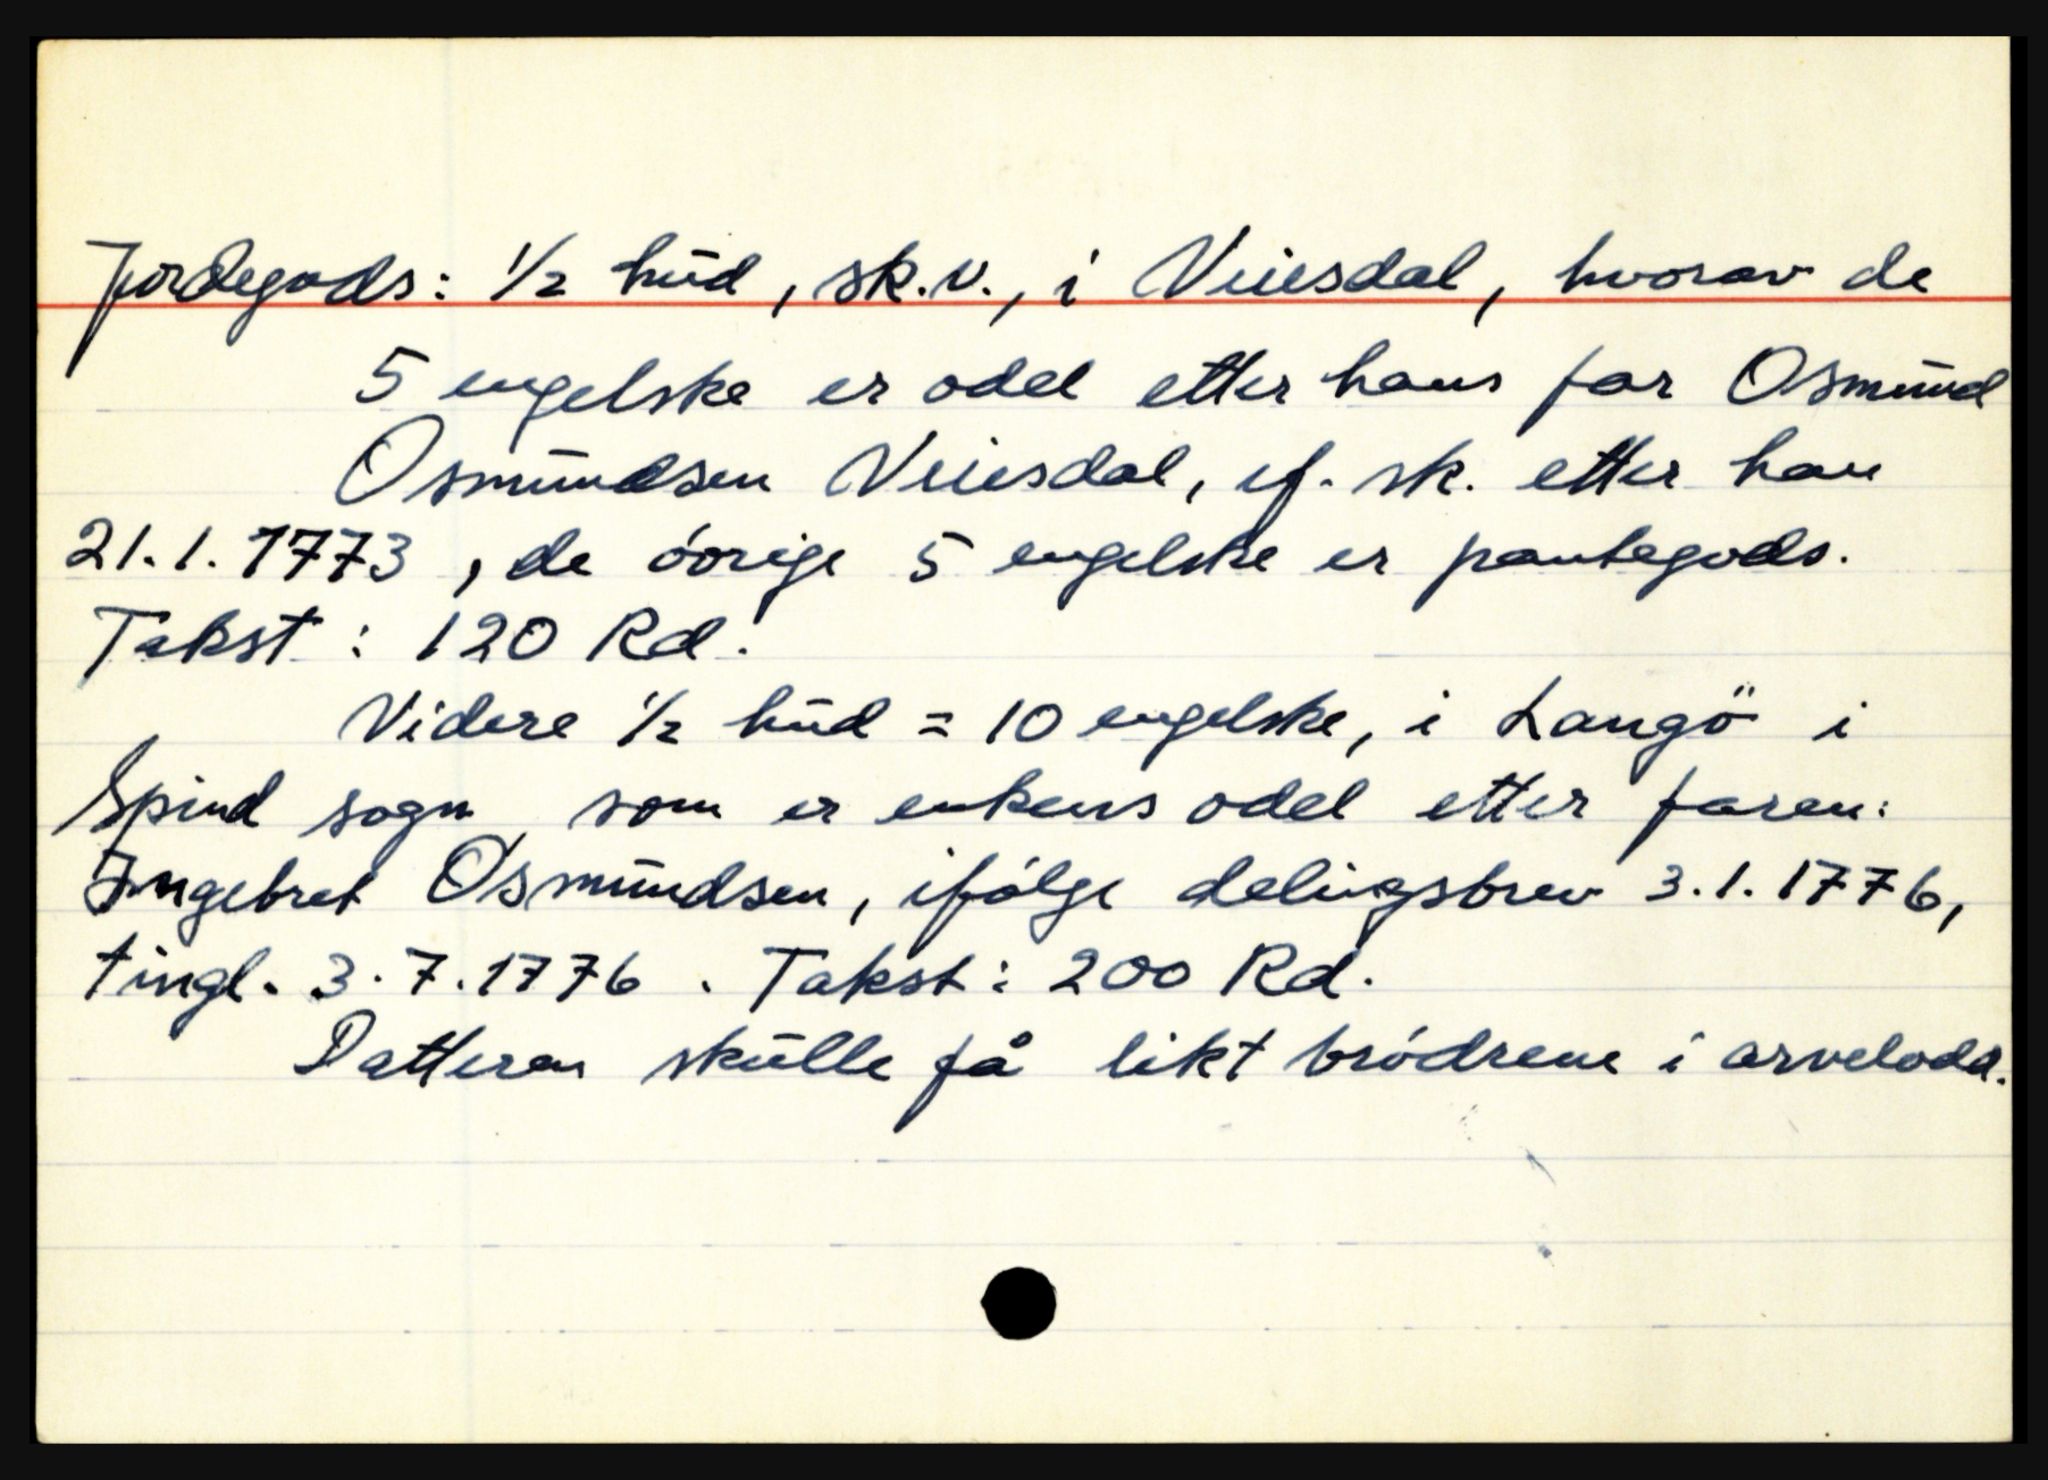 Jordegods: 1/2 hud, sk.v., i Veiesdal, hvorav de
5 engelske er odel etter hans far Osmund
Osmundsen Veiesdal, if. sk. etter ham
21.1.1773, de övrige 5 engelske er pantegods.
Takst: 120 Rd.
Videre 1/2 hud = 10 engelske, i Langö i
Spind sogn som er enkens odel etter faren:
Ingebret Osmundsen, ifólge delingsbrev 3.1.1776,
tingl. 3.7.1776. Takst: 200 Rd.
Datteren skulle få likt bródrene i arvelodd.